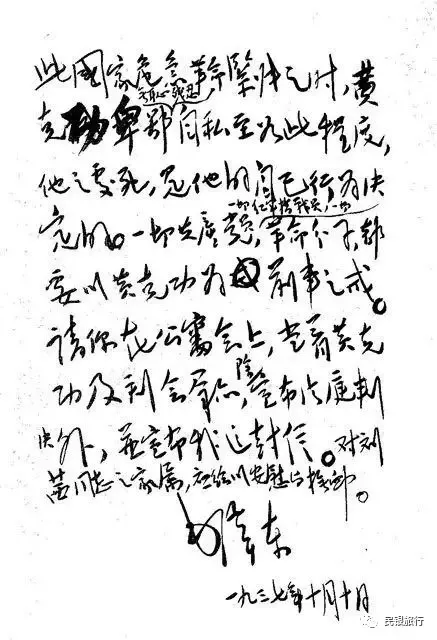 此国家危急革命紧张之时,黄
无耻残忍
克功卑鄙自私至如此程度,
他之处死,是他的自己行为决
一切红军指战员,一切
定的。一切共产党员,革命分子,都
要以黄克功为前车之戒。
请你在公审会上,当着黄克
除
功及到会群众,宣布法庭判
决外,并宣布我这封信。对刘
茜同志之家属,应给以安慰与抚恤。
毛泽东
一九三七年十月十日
民银旅行